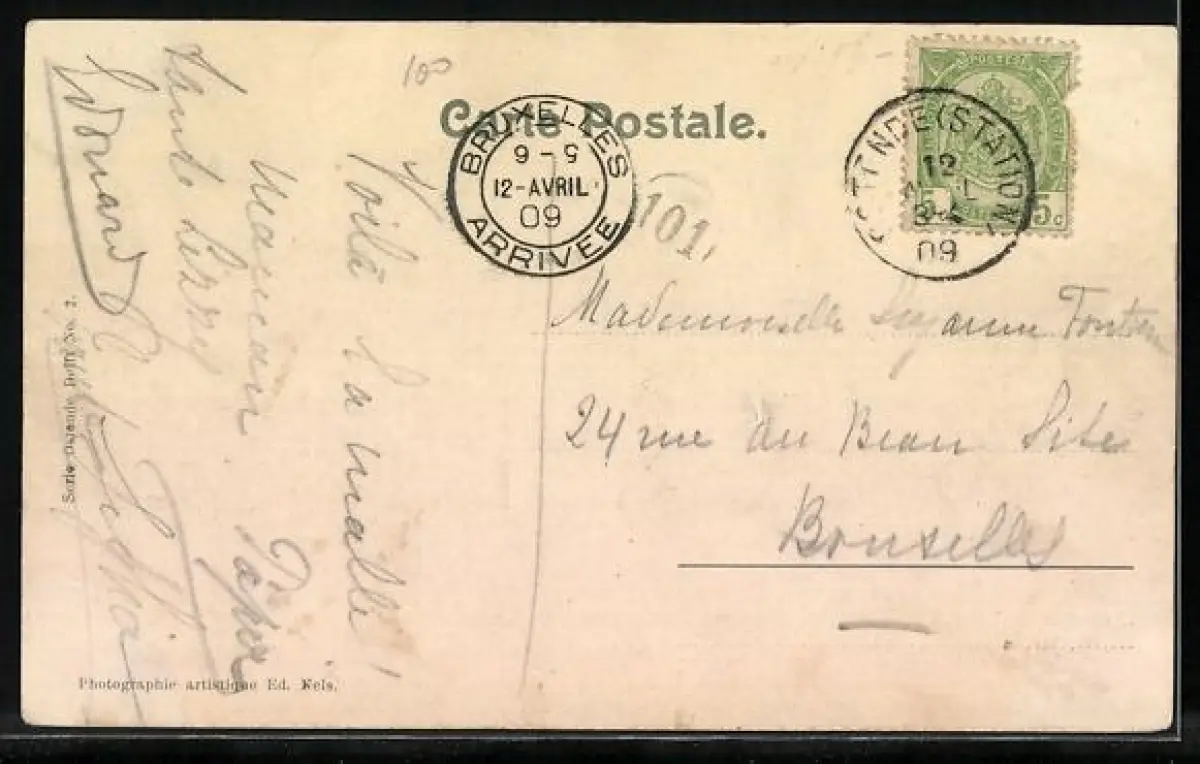 Carte Postale.
BRUXELLES
6-S
12-AVRIL
09
ARRIVEE
101
(STATION)
12
09
5c
Mademoiselle Suzanne
24 rue du Beau Site
Bruxelles
Voilà la malle!
Maman. Papa
Tante
Edouard
Serie Ostende No. 2.
Photographie artistique Ed. Nels.